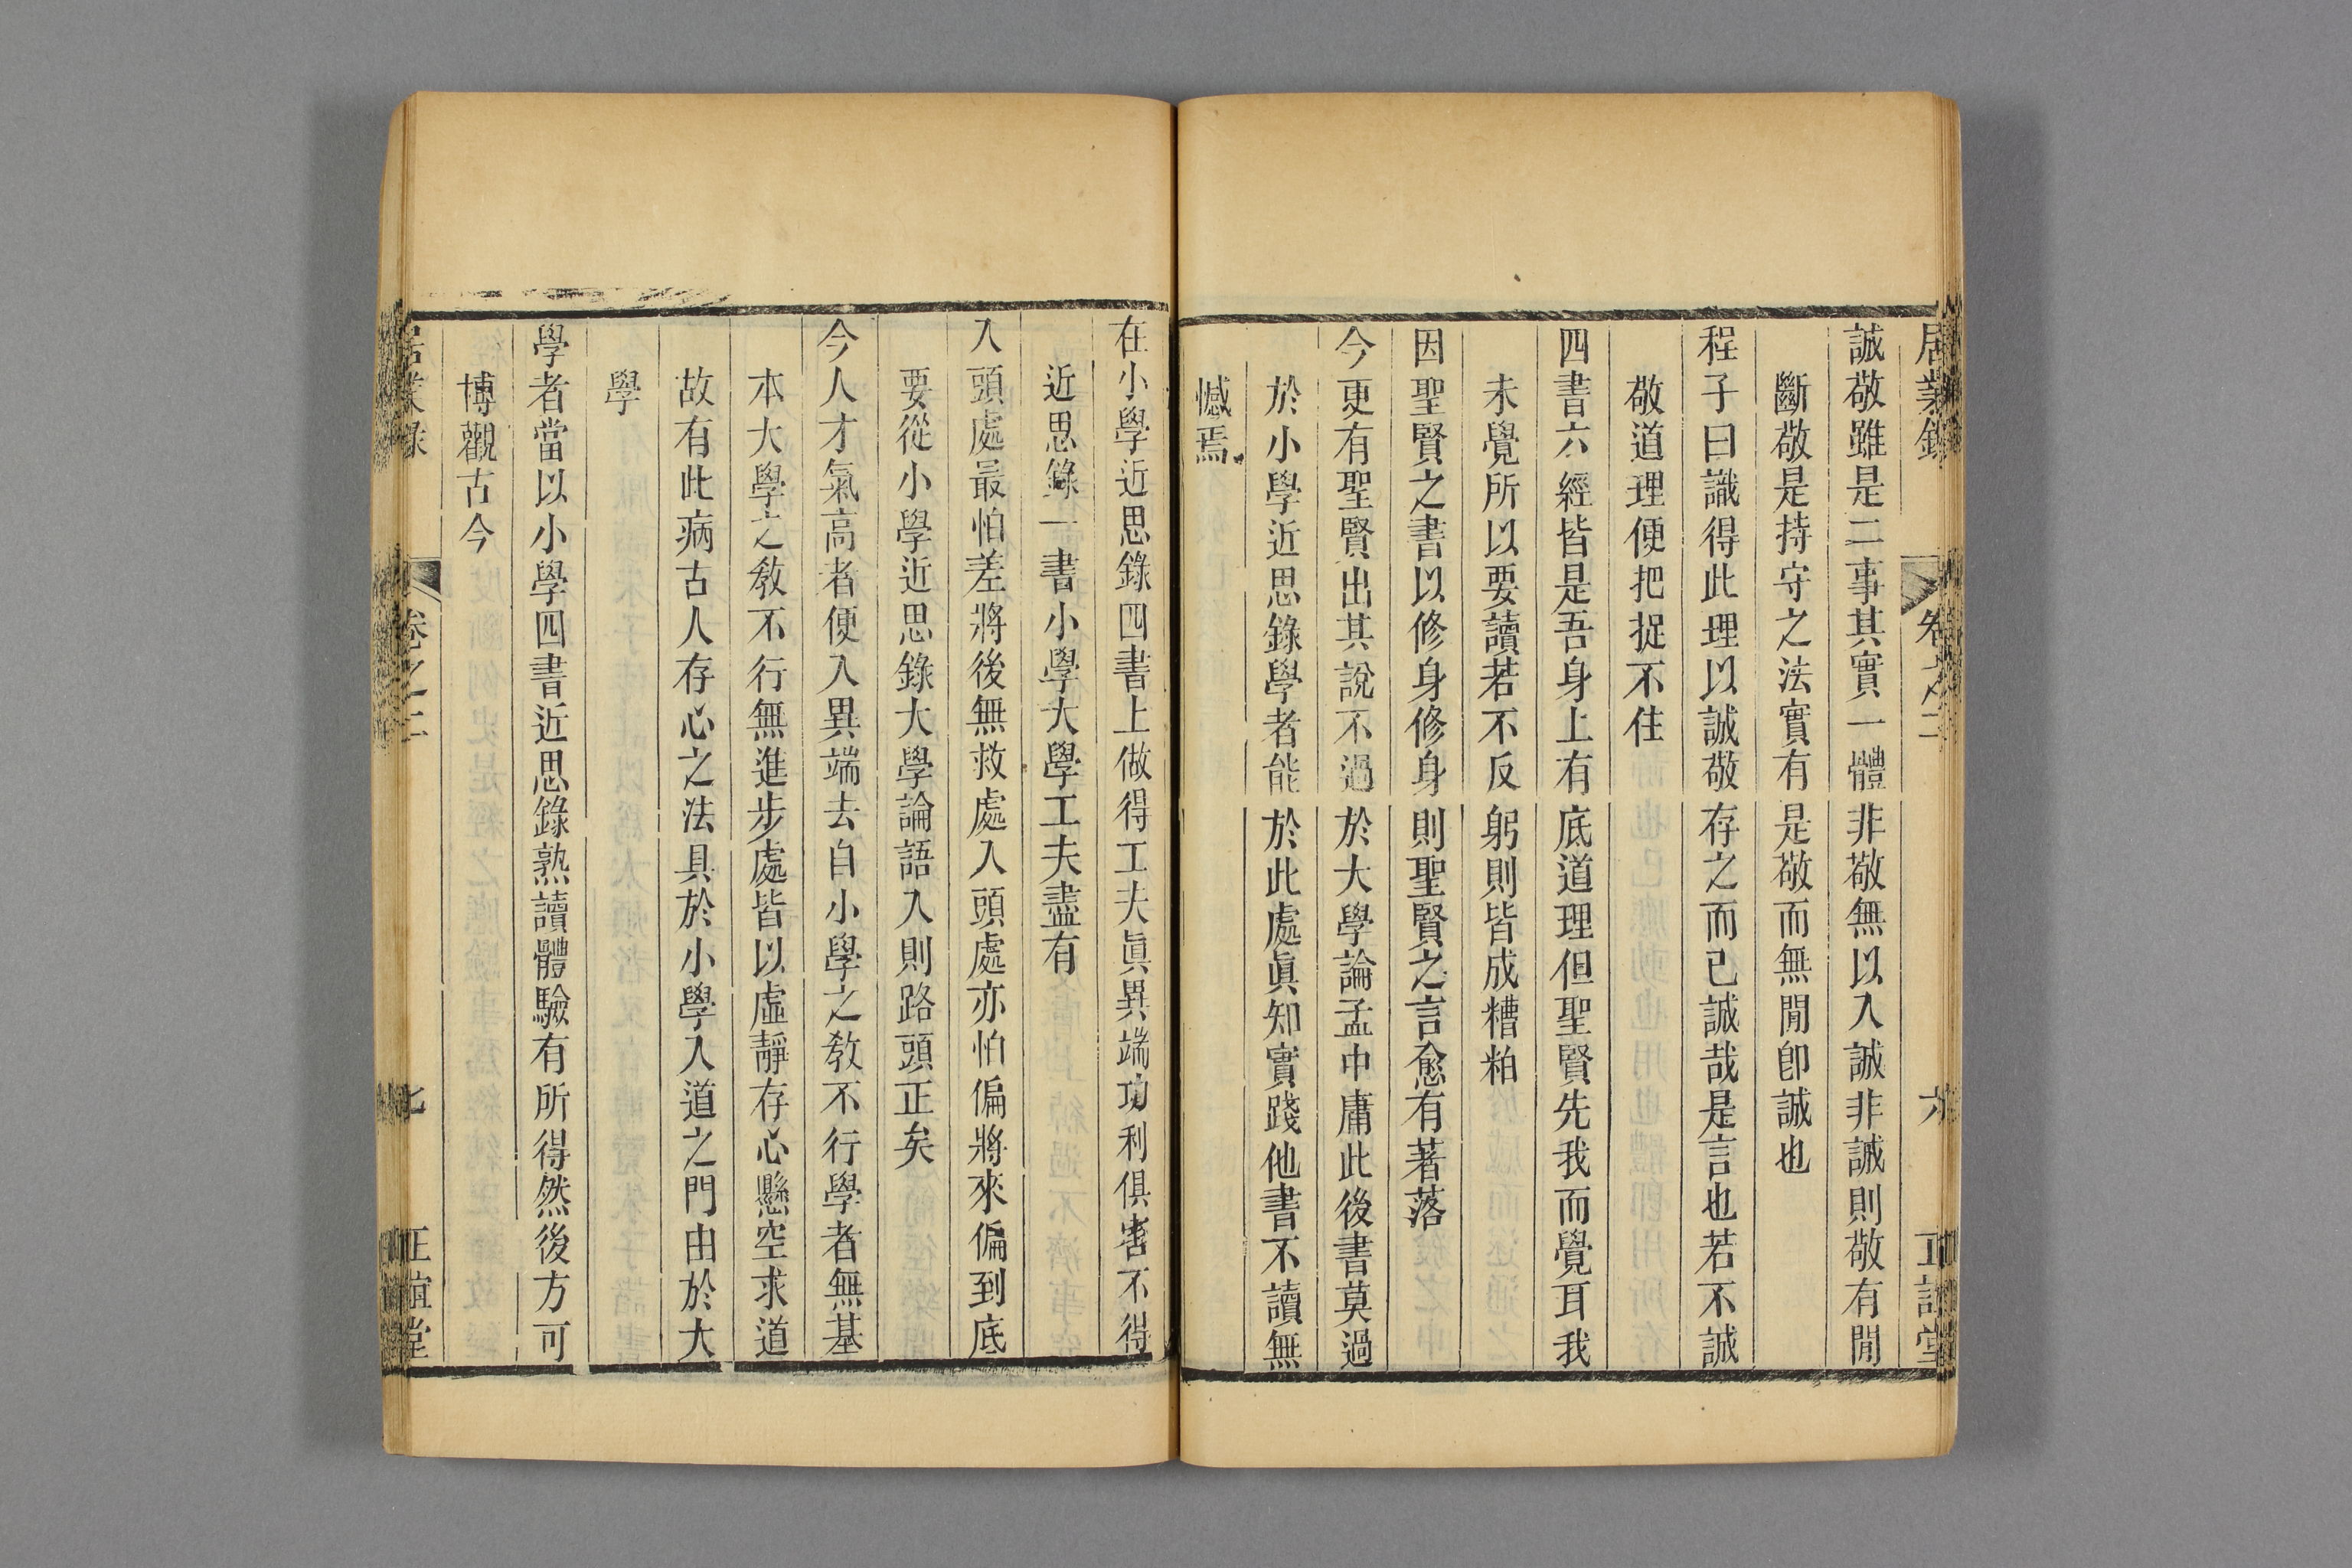 居業錄 卷之二 六 正誼堂
誠敬雖是二事其實一體非敬無以入誠非誠則敬有閒
斷敬是持守之法實有是敬而無閒卽誠也
程子曰識得此理以誠敬存之而已誠哉是言也若不誠
敬道理便把捉不住
四書六經皆是吾身上有底道理但聖賢先我而覺耳我
未覺所以要讀若不反躬則皆成糟粕
因聖賢之書以修身修身則聖賢之言愈有著落
今更有聖賢出其說不過於大學論孟中庸此後書莫過
於小學近思錄學者能於此處眞知實踐他書不讀無
憾焉
在小學近思錄四書上做得工夫眞異端功利俱害不得
近思錄一書小學大學工夫盡有
入頭處最怕差將後無救處入頭處亦怕偏將來偏到底
要從小學近思錄大學論語入則路頭正矣
今人才氣高者便入異端去自小學之敎不行學者無基
本大學之敎不行無進步處皆以虛靜存心懸空求道
故有此病古人存心之法具於小學入道之門由於大
學
學者當以小學四書近思錄熟讀體驗有所得然後方可
博觀古今
居業錄 卷之二 七 正誼堂